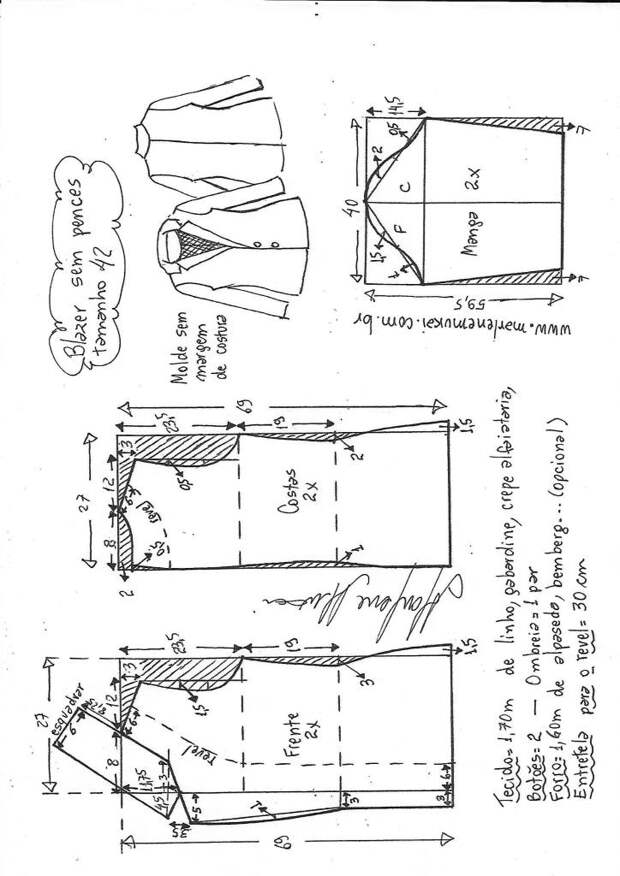 Blazer sem pences
tamanho 42
Molde sem
margem
de costura
40
14,5
0,5
2
1,5
1
F
C
Manga
2x
59,5
7
7
www.marlenemukai.com.br
27
8
12
3
6
revel
23,5
0,5
0,5
2
Costas
2x
19
2
1
69
1,5
27
8
12
3
6
esquadrar
6
11,75
3
4,5
3,5
5
revel
23,5
1,5
Frente
2x
19
3
1
3
3
6
69
1,5
Tecido=1,70m de linho, gabardine, crepe alfaiataria,
Botões=2 — Ombreia=1 par
Forro=1,60m de alpaseda, bemberg... (opcional)
Entretela para o revel=30cm